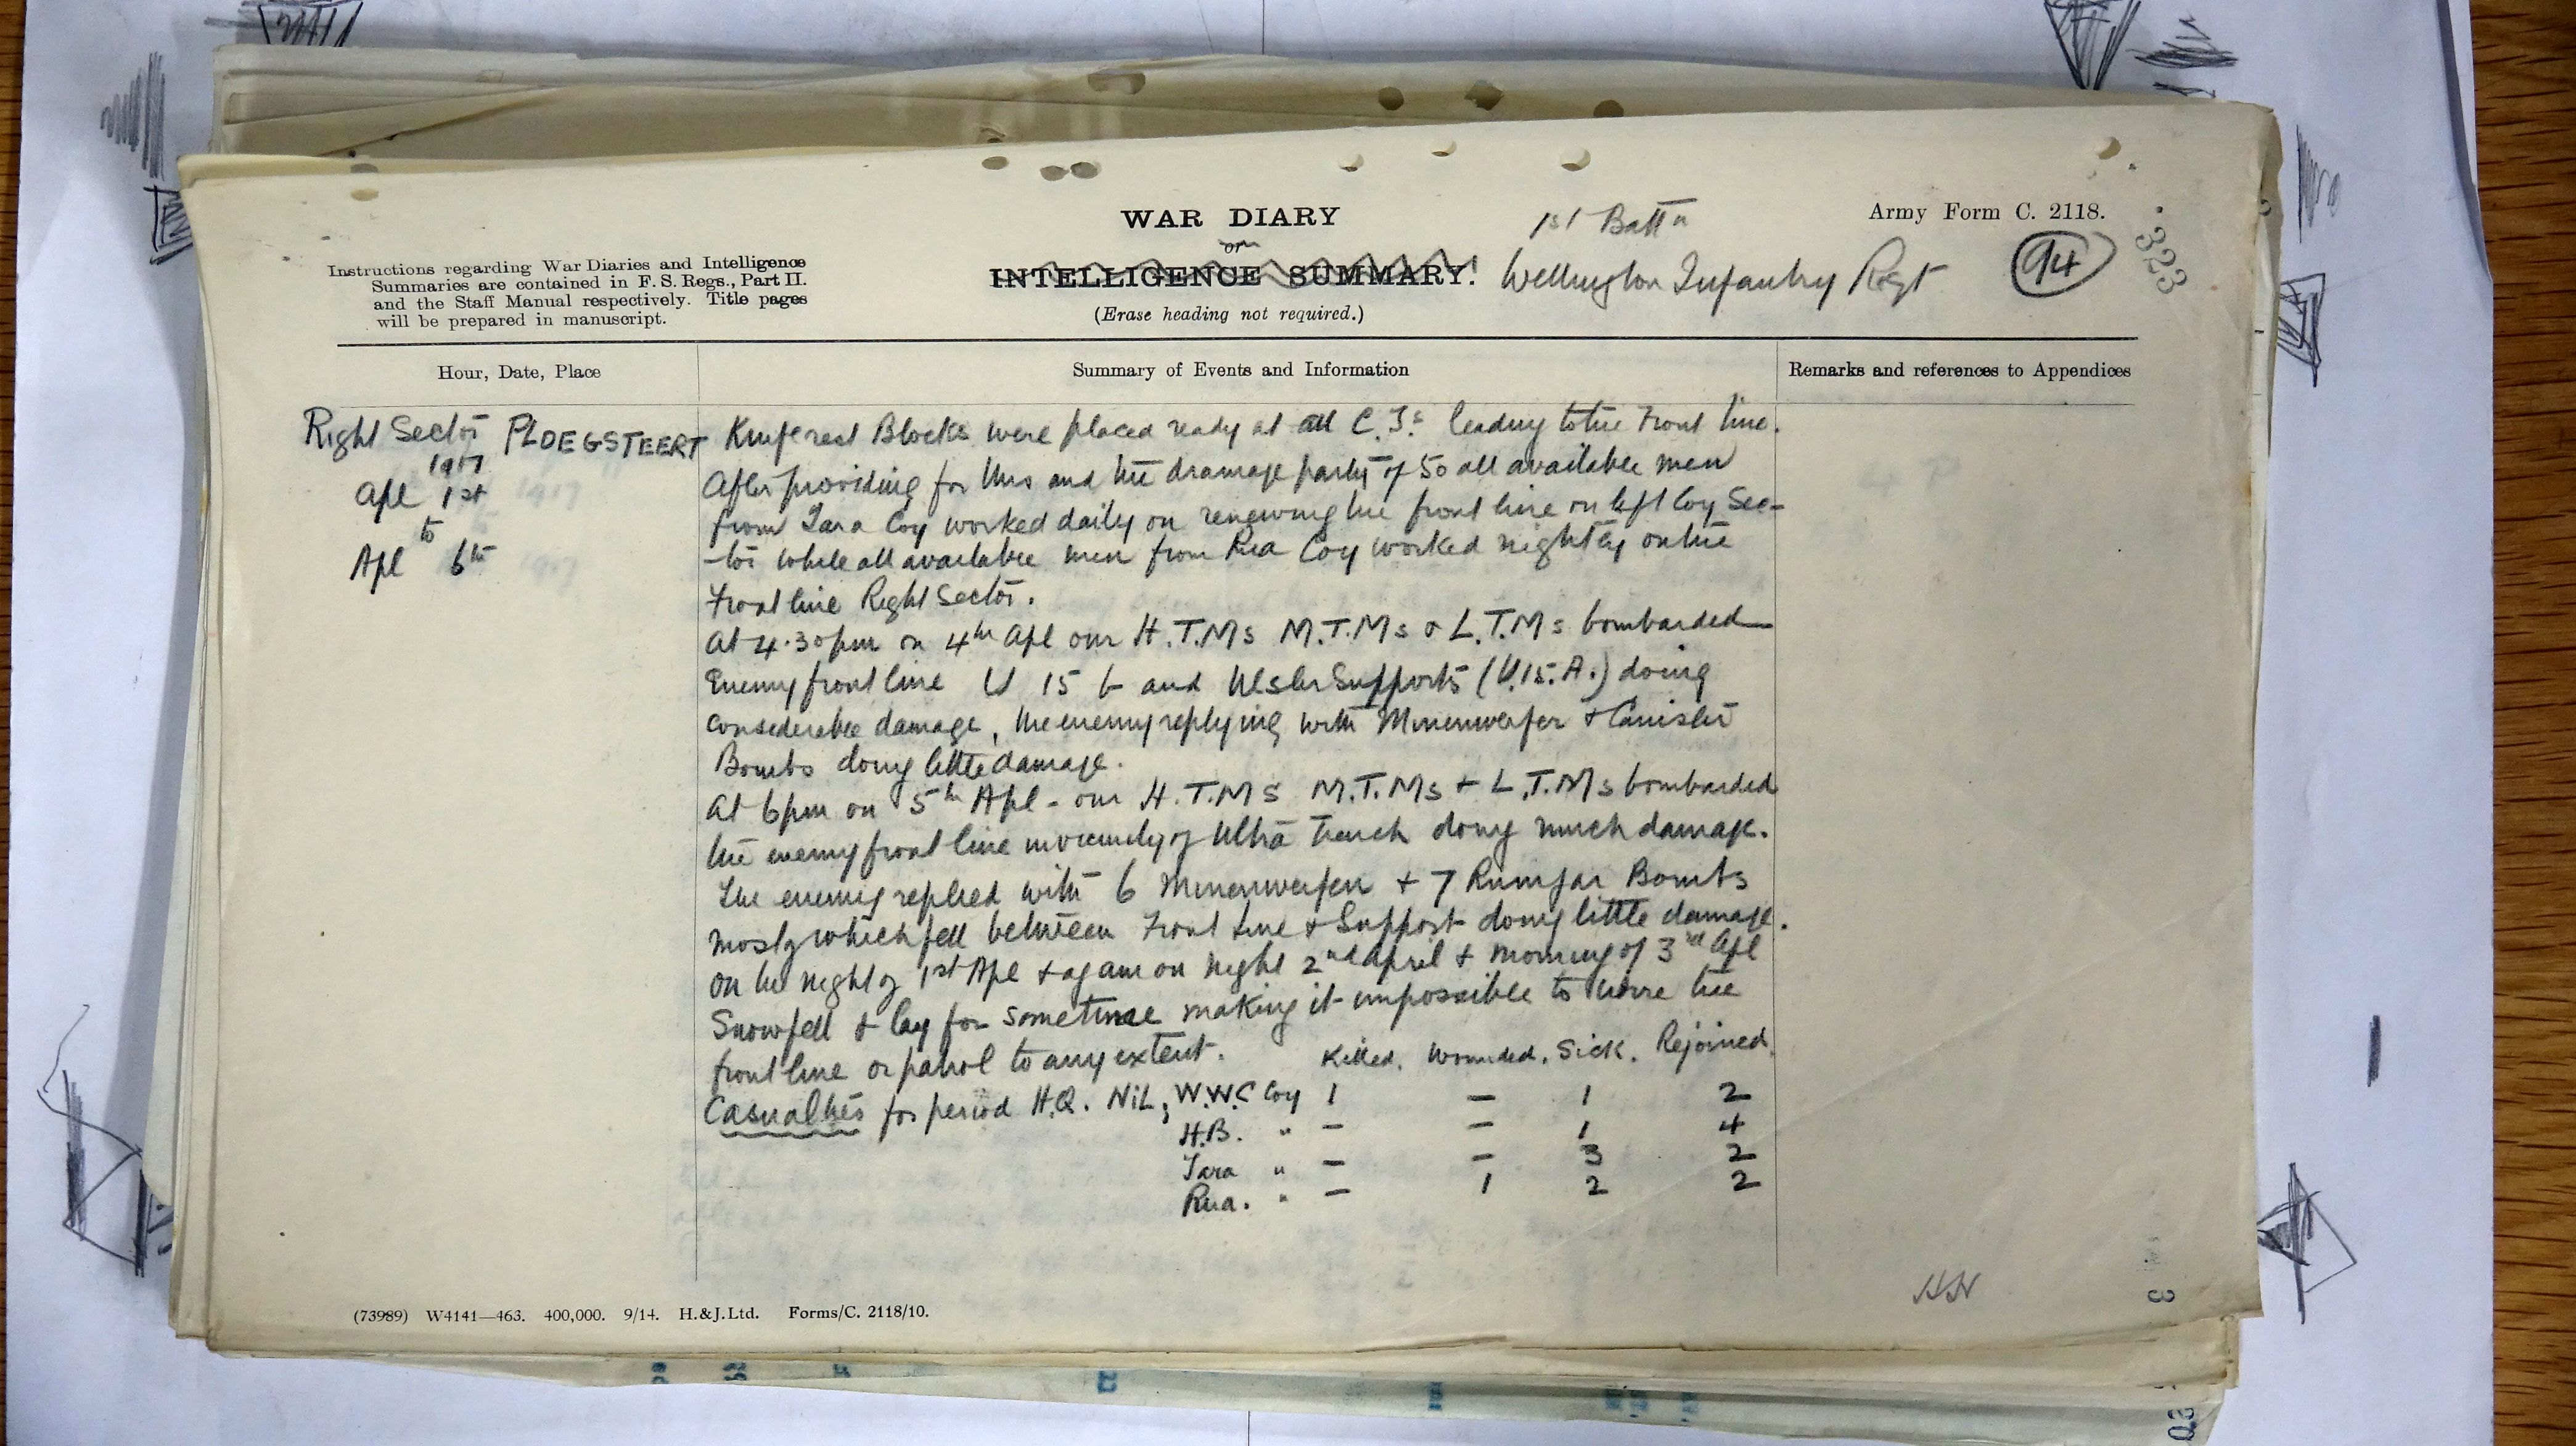 WAR DIARY
or
INTELLIGENCE SUMMARY.
(Erase heading not required.)
1st Battn
Wellington Infantry Regt
Army Form C. 2118.
94
323
Instructions regarding War Diaries and Intelligence
Summaries are contained in F. S. Regs., Part II.
and the Staff Manual respectively. Title pages
will be prepared in manuscript.
Hour, Date, Place
Summary of Events and Information
Remarks and references to Appendices
Right Sector PLOEGSTEERT
1917
Apl 1st
to
Apl 6th
Kniferest Blocks were placed ready at all C.T.s leading to the Front line.
After providing for this and the drainage party of 50 all available men
from Tara Coy worked daily on renewing the front line on left Coy Sec-
-tor while all available men from Rua Coy worked nightly on the
Front line Right Sector.
At 4.30pm on 4th Apl our H.T.Ms M.T.Ms & L.T.Ms bombarded
Enemy front line U 15 b and Ulster Supports (U.15.A.) doing
considerable damage, the enemy replying with Minenwerfer & Canister
Bombs doing little damage.
At 6pm on 5th Apl - our H.T.Ms M.T.Ms + L.T.Ms bombarded
the enemy front line in vicinity of Ultra Trench doing much damage.
The enemy replied with 6 Minenwerfer + 7 Rumjar Bombs
most of which fell between Front Line & Support doing little damage.
On the night of 1st Apl & again on night 2nd April & morning of 3rd Apl
Snow fell & lay for sometime making it impossible to wire the
front line or patrol to any extent.
Killed. Wounded. Sick. Rejoined.
Casualties for period H.Q. Nil; W.W.C Coy 1 — 1 2
H.B. " — — 1 4
Tara " — — 3 2
Rua. " — 1 2 2
(73989) W4141—463. 400,000. 9/14. H.&J.Ltd. Forms/C. 2118/10.